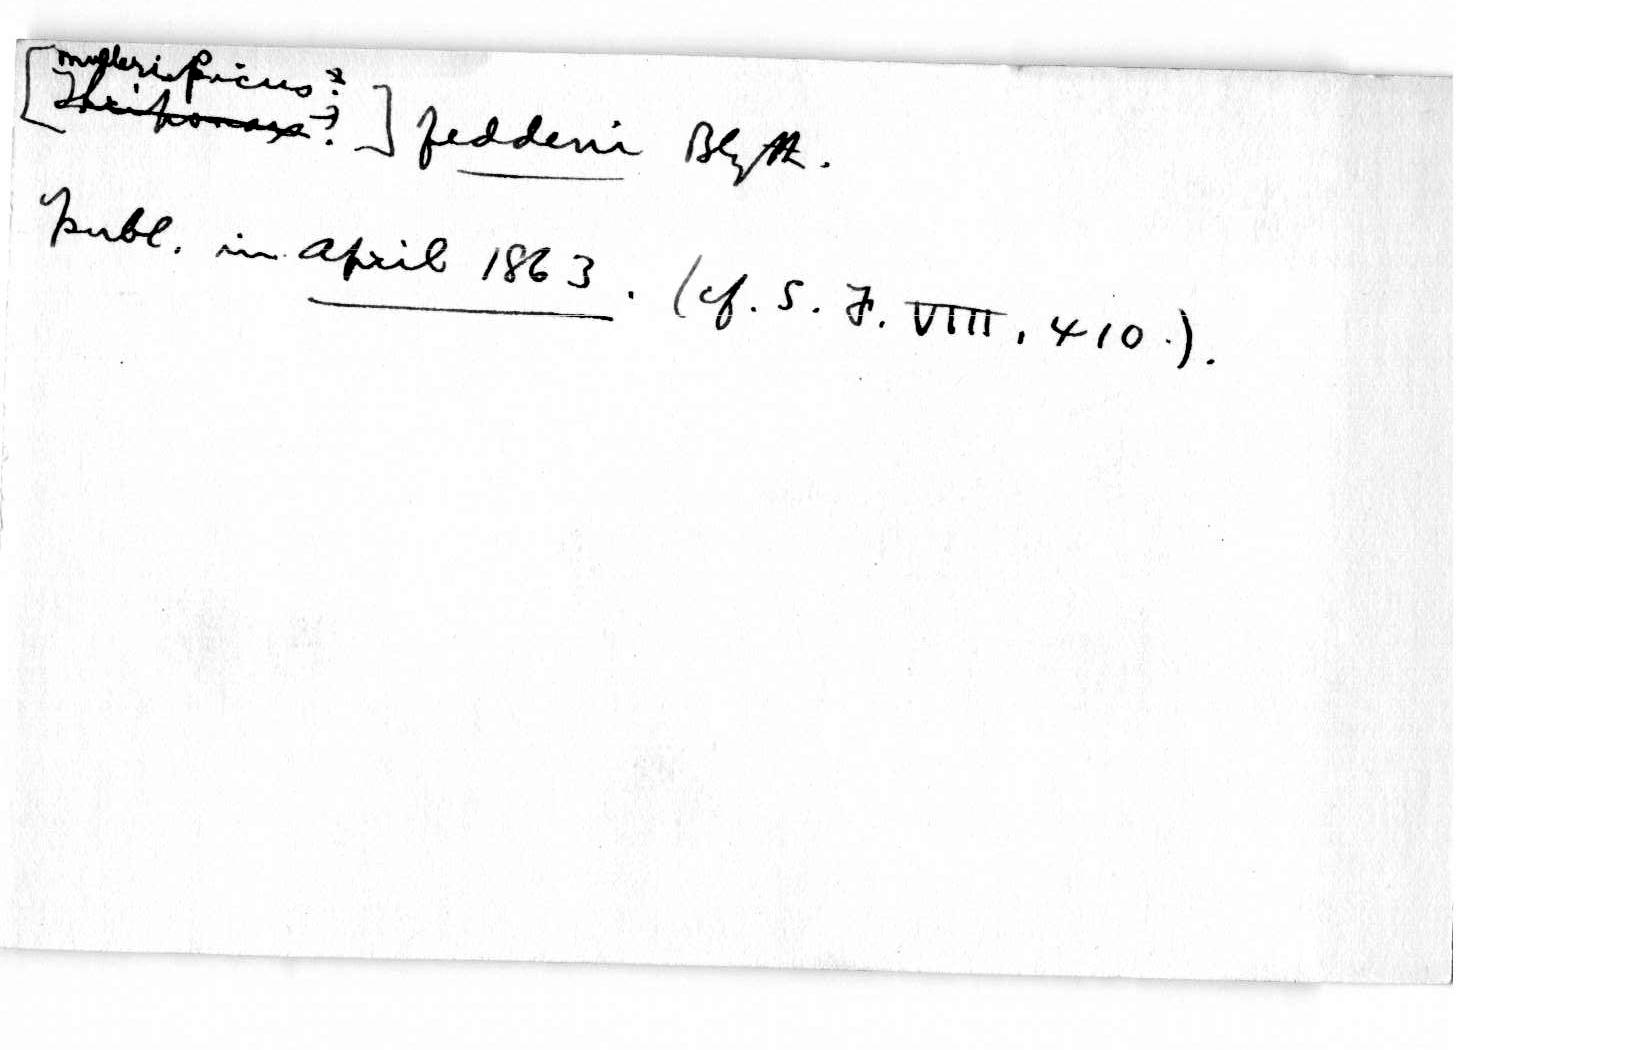 [mulleripicus?
Thriponax?] feddeni Blyth.
publ. in April 1863. (cf. S. F. VIII, 410.).